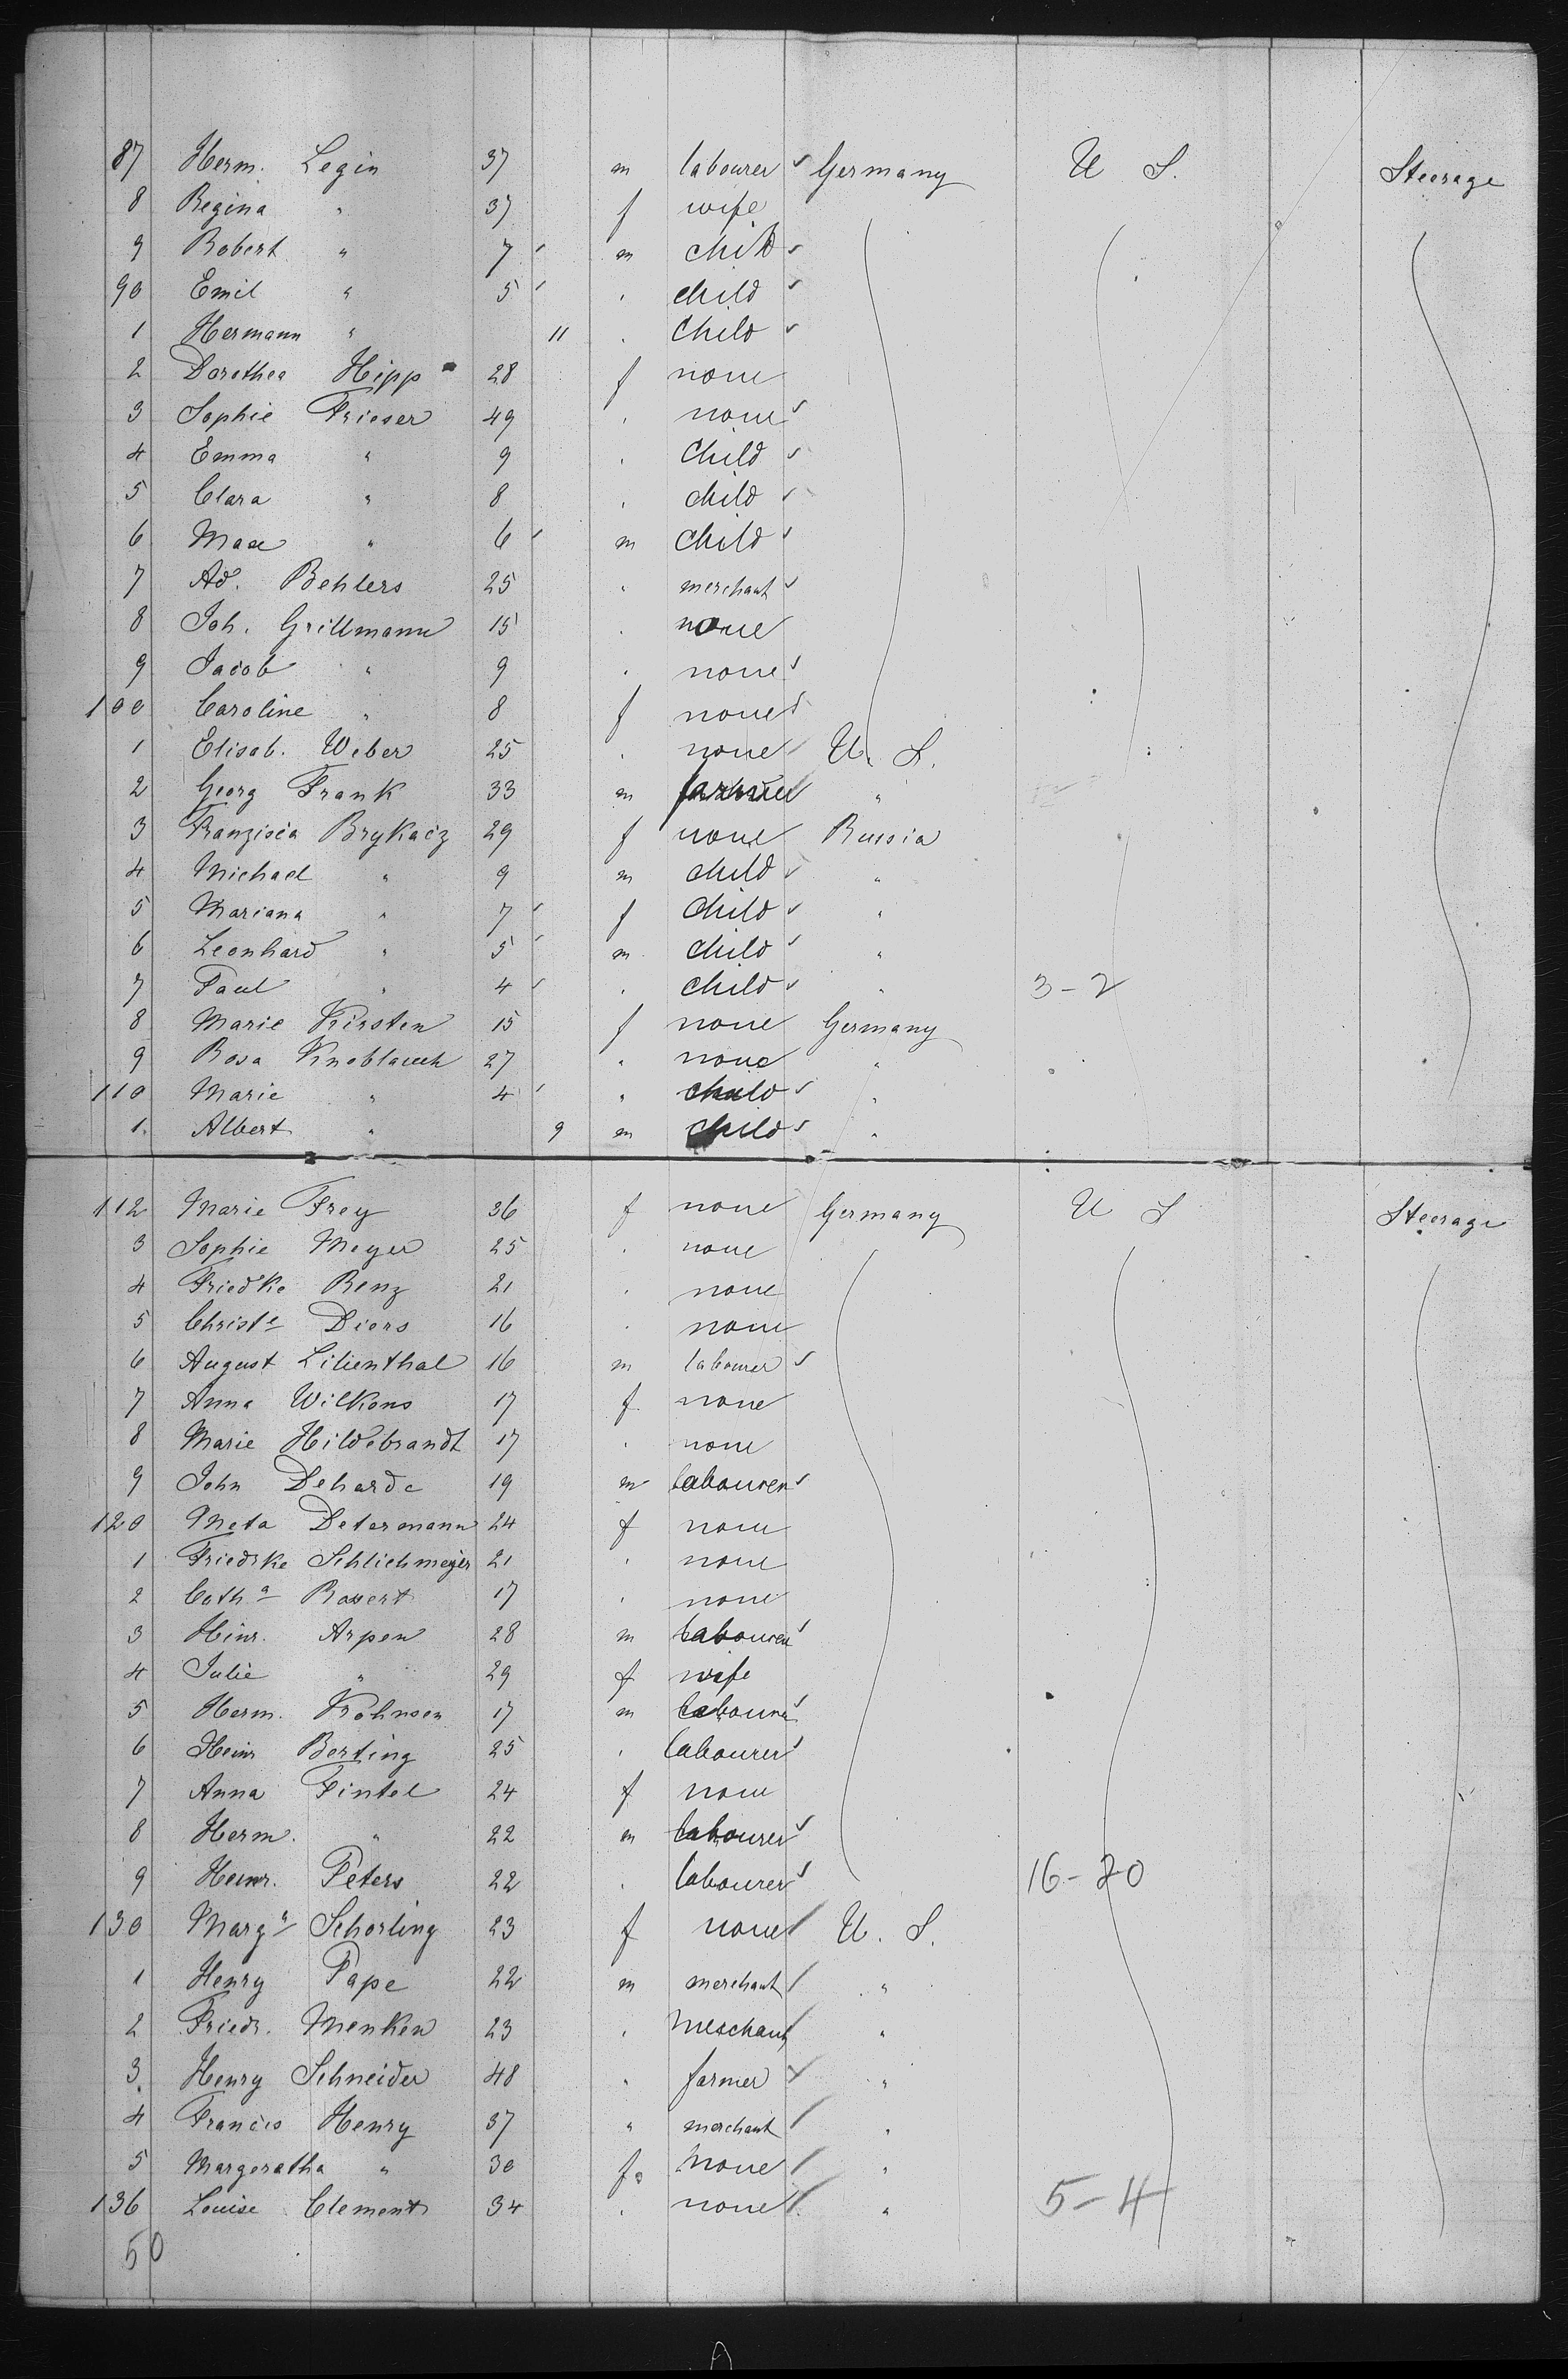 87 Herm. Legin 37 m labourer Germany U S. Steerage
8 Regina " 37 f wife
9 Robert " 7 m child
90 Emil " 5 " child
1 Hermann " 11 " Child
2 Dorothea Hipp 28 f none
3 Sophie Frieser 49 " none
4 Emma " 9 " Child
5 Clara " 8 " child
6 Max " 6 m child
7 Ad. Behlers 25 " merchant
8 Joh. Grillmann 15 " none
9 Jacob " 9 " none
100 Caroline " 8 f none
1 Elisab. Weber 25 " none U. S.
2 Georg Frank 33 m farmer "
3 Franzisca Brykacz 29 f none Russia
4 Michael " 9 m child "
5 Mariana " 7 f Child "
6 Leonhard " 5 m child "
7 Paul " 4 " child " 3-2
8 Marie Kirsten 15 f none Germany
9 Rosa Knoblauch 27 " none "
110 Marie " 4 " child "
1. Albert " 9 m child "
112 Marie Frey 36 f none Germany U S Steerage
3 Sophie Meyer 25 " none
4 Friedke Renz 21 " none
5 Christe Diers 16 " none
6 August Lilienthal 16 m labourer
7 Anna Wilkens 17 f. none
8 Marie Hildebrandt 17 " none
9 John Deharde 19 m labourer
120 Meta Determann 24 f none
1 Friedrke Schlichmeyer 21 " none
2 Catha 17 " none
3 Hinr. Arpen 28 m labourer
4 Julie " 29 f wife
5 Herm. Krohnsen 17 m labourer
6 Heinr Berting 25 " labourer
7 Anna Fintel 24 f none
8 Herm. " 22 m labourer
9 Heinr. Peters 22 " labourer 16-20
130 Marga Schorling 23 f none U. S.
1 Henry Pape 22 m merchant "
2 Friedr. Menken 23 " merchant "
3. Henry Schneider 48 " farmer "
4 Francis Henry 37 " merchant "
5 Margeratha " 30 f. none "
136 Louise Clement 34 " none " 5-4
50